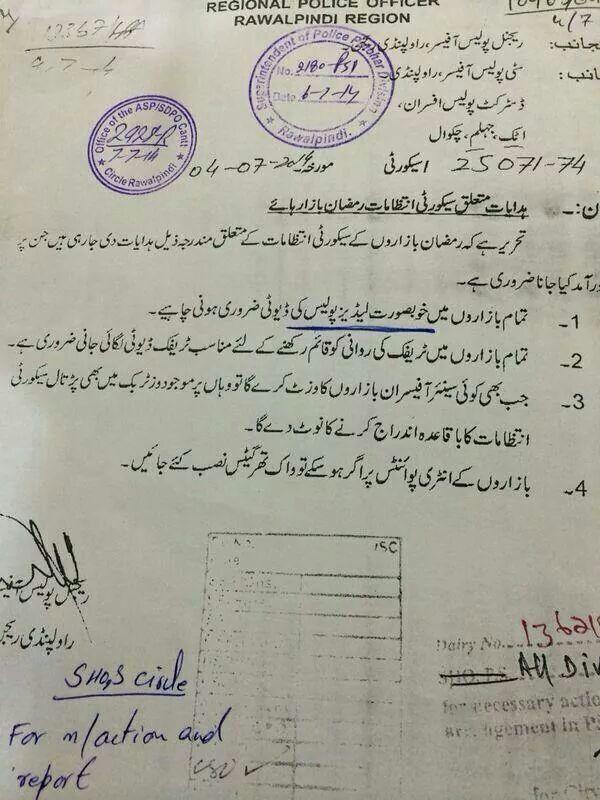 REGIONAL POLICE OFFICER
RAWALPINDI REGION
4/7
جانب:
ریجنل پولیس آفیسر، راولپنڈی
سٹی پولیس آفیسر، راولپنڈی
ڈسٹرکٹ پولیس افسران،
اٹک، جہلم، چکوال
Superintendent of Police Potohar Division
No. 2180-PSI
Date
Rawalpindi.
Office of the ASP/SDPO Cantt
7-7-14
Circle Rawalpindi
25071-74 اسکورٹی مورخہ 04-07-2014
ہدایات متعلق سیکورٹی انتظامات رمضان بازار ہائے
تحریر ہے کہ رمضان بازاروں کے سیکورٹی انتظامات کے متعلق مندرجہ ذیل ہدایات دی جا رہی ہیں جن پر
درآمد کیا جانا ضروری ہے۔
1۔ تمام بازاروں میں خوبصورت لیڈیز پولیس کی ڈیوٹی ضروری ہونی چاہیے۔
2۔ تمام بازاروں میں ٹریفک کی روانی کو قائم رکھنے کے لئے مناسب ٹریفک ڈیوٹی لگائی جانی ضروری ہے۔
3۔ جب بھی کوئی سینئر آفیسران بازاروں کا وزٹ کرے گا تو وہاں پر موجود وزٹر بک میں بھی پڑتال سیکورٹی
انتظامات کا باقاعدہ اندراج کرنے کا نوٹ دے گا۔
4۔ بازاروں کے انٹری پوائنٹس پر اگر ہو سکے تو واک تھرو گیٹس نصب کئے جائیں۔
ریجنل پولیس آفیسر
راولپنڈی ریجن
ISC
Dairy No.
SHO, PS All Div
for necessary action
SHO,S Circle
For n/action and
report